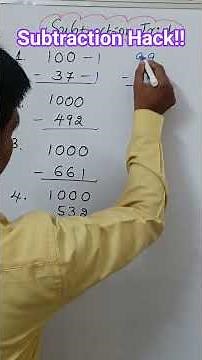 Subtraction Tri
Subtraction Hack!!
1. 100 - 1 99
- 37 - 1 -
1000
- 492
3.
1000
- 661
4. 1000
532